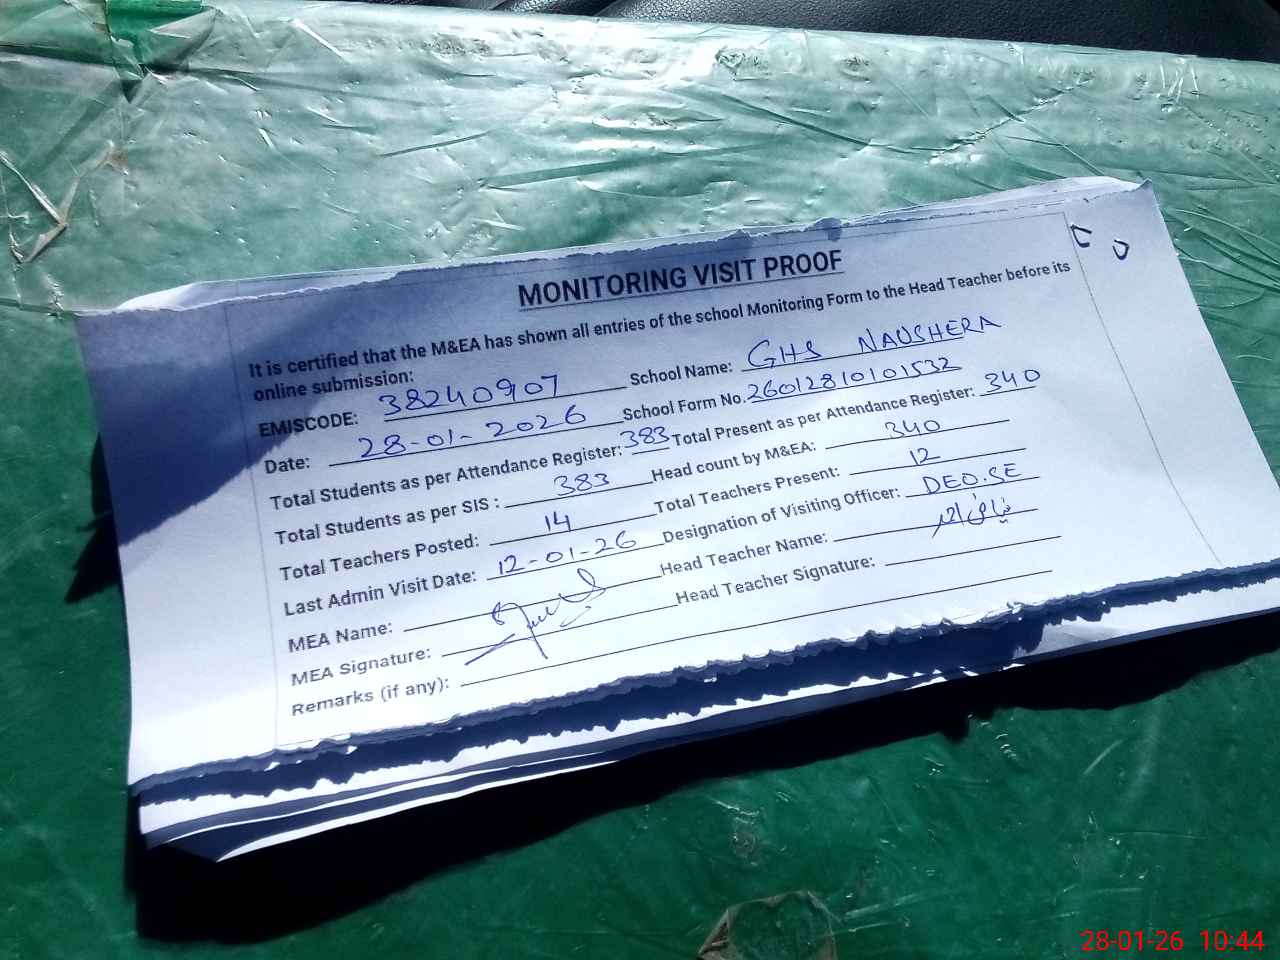 MONITORING VISIT PROOF
It is certified that the M&EA has shown all entries of the school Monitoring Form to the Head Teacher before its
online submission:
EMISCODE: 38240907 School Name: GHS NAUSHERA
Date: 28-01-2026 School Form No. 26012810101532
Total Students as per Attendance Register: 383 Total Present as per Attendance Register: 340
Total Students as per SIS : 383 Head count by M&EA: 340
Total Teachers Posted: 14 Total Teachers Present: 12
Last Admin Visit Date: 12-01-26 Designation of Visiting Officer: DEO.SE
MEA Name: Head Teacher Name:
MEA Signature: Head Teacher Signature:
Remarks (if any):
28-01-26 10:44